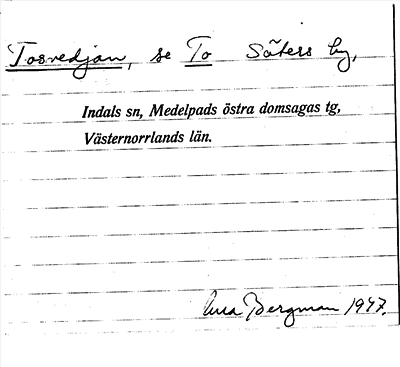 Tosvedjan, se To Säters by,
Indals sn, Medelpads östra domsagas tg,
Västernorrlands län.
Anna Bergman 1947.